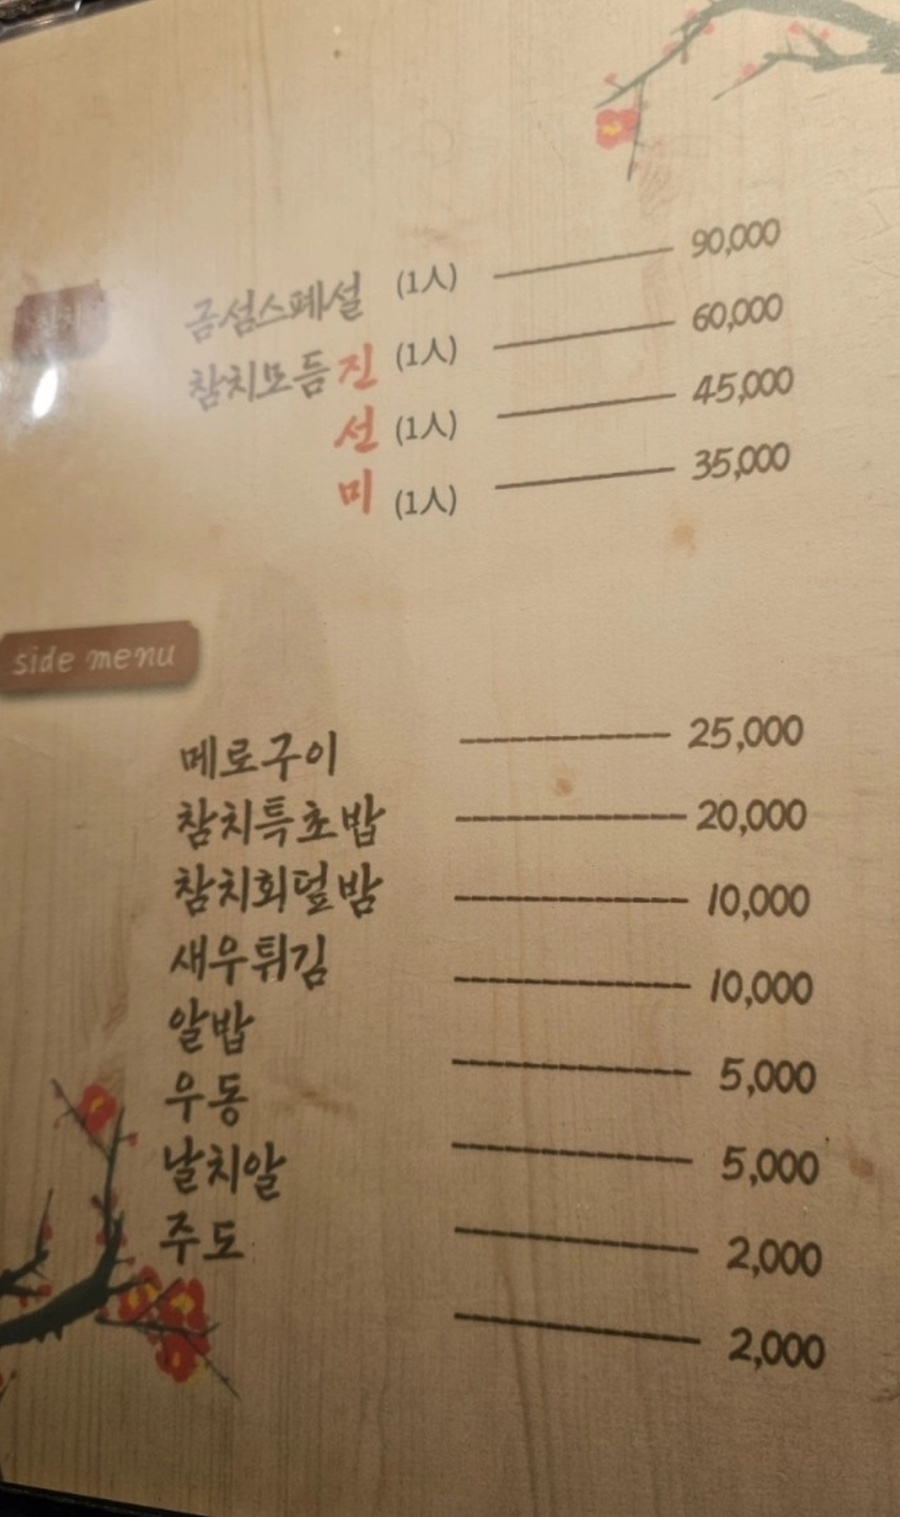 금섬스페셜 (1人) 90,000
참치모듬 진 (1人) 60,000
선 (1人) 45,000
미 (1人) 35,000
side menu
메로구이 25,000
참치특초밥 20,000
참치회덮밥 10,000
새우튀김 10,000
알밥 5,000
우동 5,000
날치알 2,000
주도 2,000